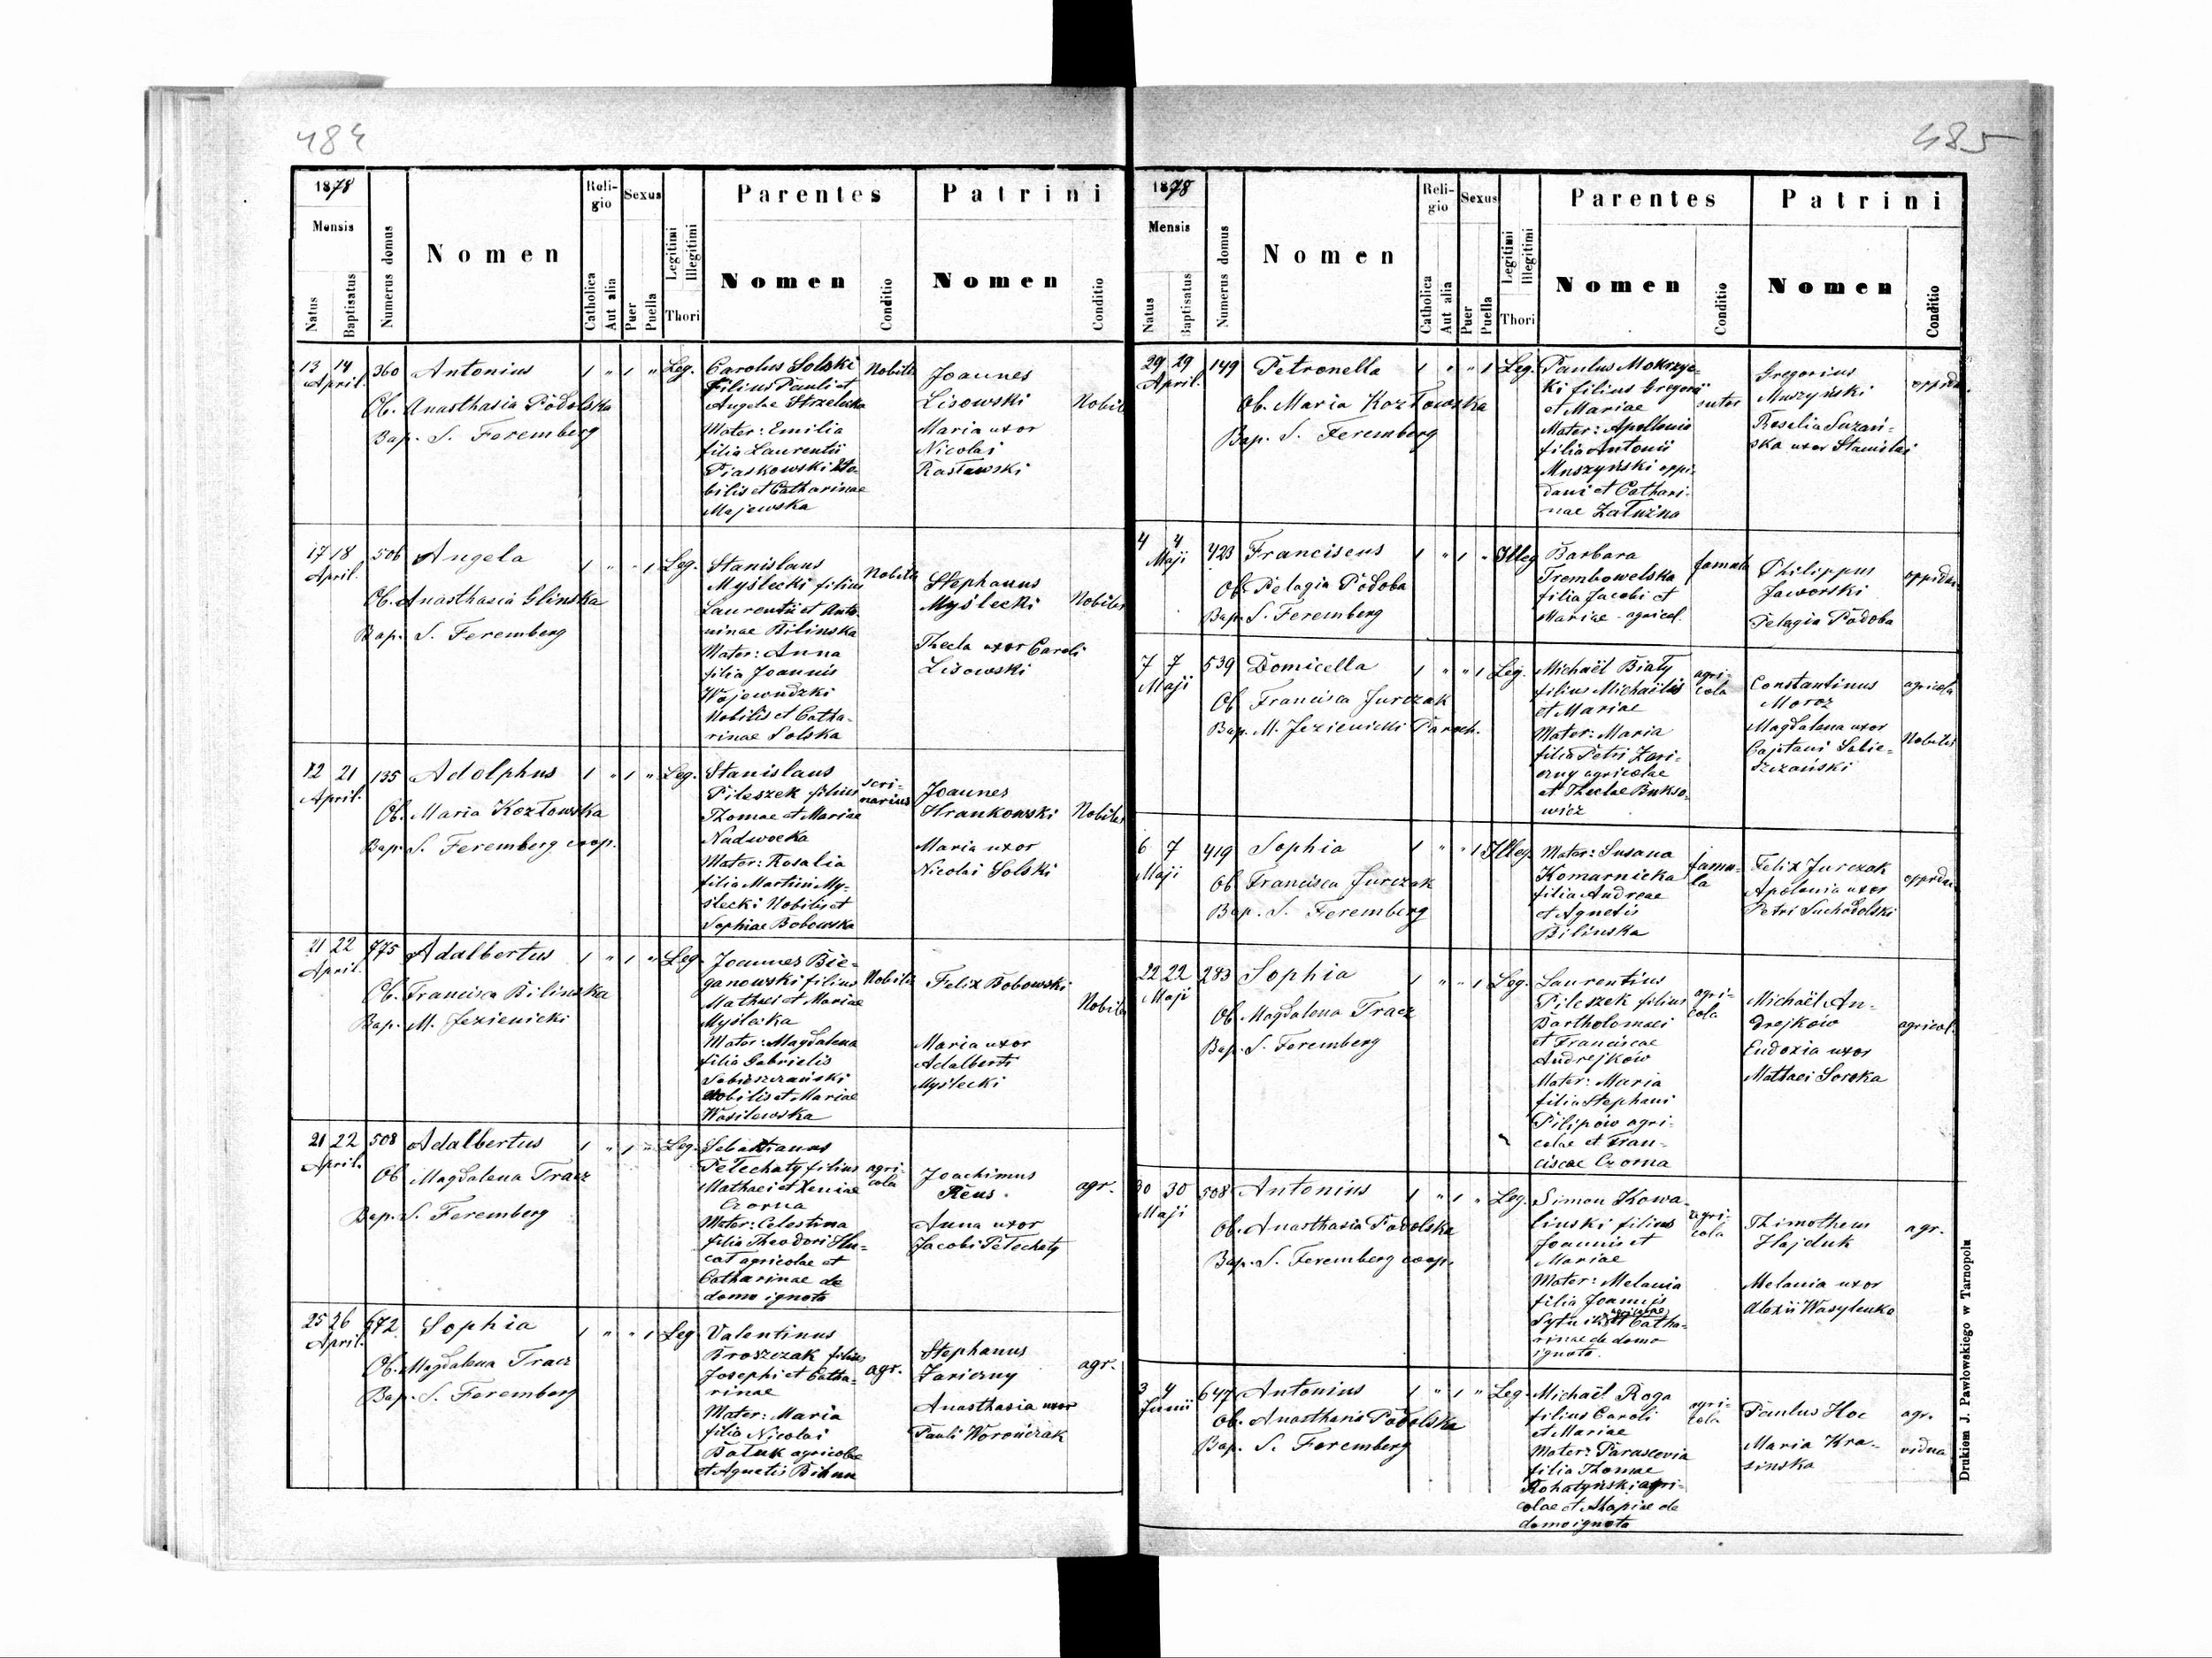 484
1878
Mensis
Natus
Baptisatus
Numerus domus
Nomen
Religio
Catholica
Aut alia
Sexus
Puer
Puella
Legitimi
Illegitimi
Thori
Parentes
Nomen
Conditio
Patrini
Nomen
Conditio
13 14 April. 360 Antonius 1 " 1 " Leg.
Ob. Anasthasia Podolska
Bap. S. Feremberg
Carolus Solski
filius Pauli et
Angelae Strzelecka
Mater: Emilia
filia Laurentii
Piaskowski No-
bilis et Catharinae
Majewska
Nobilis
Joannes
Lisowski
Maria uxor
Nicolai
Rastawski
Nobiles
17 18 April. 506 Angela 1 " " 1 Leg.
Ob. Anasthasia Glinska
Bap. S. Feremberg
Stanislaus
Myślecki filius
Laurentii et Anto-
ninae Bilinska
Mater: Anna
filia Joannis
Wojewudzki
Nobilis et Catha-
rinae Solska
Nobilis
Stephanus
Myślecki
Thecla uxor Caroli
Lisowski
Nobiles
12 21 April. 135 Adolphus 1 " 1 " Leg.
Ob. Maria Kozłowska
Bap. S. Feremberg coop.
Stanislaus
Pileszek filius
Thomae et Mariae
Nadwocka
Mater: Rosalia
filia Martini My-
ślecki Nobilis et
Sophiae Bobowska
scri-
narius
Joannes
Hrankowski
Maria uxor
Nicolai Solski
Nobiles
21 22 April. 775 Adalbertus 1 " 1 " Leg.
Ob. Francisca Bilinska
Bap. M. Jezienicki
Joannes Bie-
ganowski filius
Mathaei et Mariae
Myślecka
Mater: Magdalena
filia Gabrielis
Sobieszczański
Nobilis et Mariae
Wasilewska
Nobilis
Felix Bobowski
Maria uxor
Adalberti
Myślecki
Nobiles
21 22 April. 508 Adalbertus 1 " 1 " Leg.
Ob Magdalena Tracz
Bap. S. Feremberg
Sebastianus
Pełechaty filius
Mathaei et Xeniae
Czorna
Mater: Celestina
filia Theodori Hu-
cat agricolae et
Catharinae de
domo ignota
agri-
cola
Joachimus
Reus.
Anna uxor
Jacobi Pełechaty
agr.
25 26 April. 672 Sophia 1 " " 1 Leg
Ob. Magdalena Tracz
Bap. S. Feremberg
Valentinus
Broszczak filius
Josephi et Catha-
rinae
Mater: Maria
filia Nicolai
Bałuk agricolae
et Agnetis Bihun
agr.
Stephanus
Zariczny
Anasthasia uxor
Pauli Worończak
agr.
485
1878
Mensis
Natus
Baptisatus
Numerus domus
Nomen
Religio
Catholica
Aut alia
Sexus
Puer
Puella
Legitimi
Illegitimi
Thori
Parentes
Nomen
Conditio
Patrini
Nomen
Conditio
29 29 April. 149 Petronella 1 " " 1 Leg.
Ob. Maria Kozłowska
Bap. S. Feremberg
Paulus Mokrzyc-
ki filius Gregorii
et Mariae
Mater: Apollonia
filia Antonii
Muszyński oppi-
dani et Cathari-
nae Załuzna
sutor
Gregorius
Muszyński
Rosalia Suzań-
ska uxor Stanislai
oppidani
4 4 Maji 423 Franciscus 1 " 1 " Illeg
Ob Pelagia Podoba
Bap. S. Feremberg
Barbara
Trembowelska
filia Jacobi et
Mariae agricol.
famula
Philippus
Jaworski
Pelagia Podoba
oppidani
7 7 Maji 539 Domicella 1 " " 1 Leg.
Ob Francisca Jurczak
Bap. M. Jezienicki Paroch.
Michaël Biały
filius Michaëlis
et Mariae
Mater: Maria
filia Petri Zari-
czny agricolae
et Theclae Bukso-
wicz
agri-
cola
Constantinus
Moroz
Magdalena uxor
Cajetani Sobie-
szczański
agricola
Nobiles
6 7 Maji 419 Sophia 1 " " 1 Illeg.
Ob Francisca Jurczak
Bap. S. Feremberg
Mater: Susana
Komarnicka
filia Andreae
et Agnetis
Bilinska
famu-
la
Felix Jurczak
Apolonia uxor
Petri Suchodolski
oppidani
22 22 Maji 283 Sophia 1 " " 1 Leg.
Ob Magdalena Tracz
Bap. S. Feremberg
Laurentius
Pileszek filius
Bartholomaei
et Franciscae
Andrejków
Mater: Maria
filia Stephani
Pilipów agri-
colae et Fran-
ciscae Czorna
agri-
cola
Michaël An-
drejków
Eudoxia uxor
Mathaei Soroka
agricol.
30 30 Maji 508 Antonius 1 " 1 " Leg.
Ob. Anasthasia Podolska
Bap. S. Feremberg coop.
Simon Kowa-
linski filius
Joannis et
Mariae
Mater: Melania
filia Joannis
agricolae
Sytnik et Catha-
rinae de domo
ignota.
agri-
cola
Thimotheus
Hajduk
Melania uxor
Alexii Wasylenko
agr.
3 4 Junii 647 Antonius 1 " 1 " Leg.
Ob. Anasthasia Podolska
Bap. S. Feremberg
Michaël Roga
filius Caroli
et Mariae
Mater: Parascevia
filia Thomae
Rohatyński agri-
colae et Ahapiae de
domo ignota
agri-
cola
Paulus Hoc
Maria Kra-
sinska
agr.
vidua
Drukiem J. Pawłowskiego w Tarnopolu